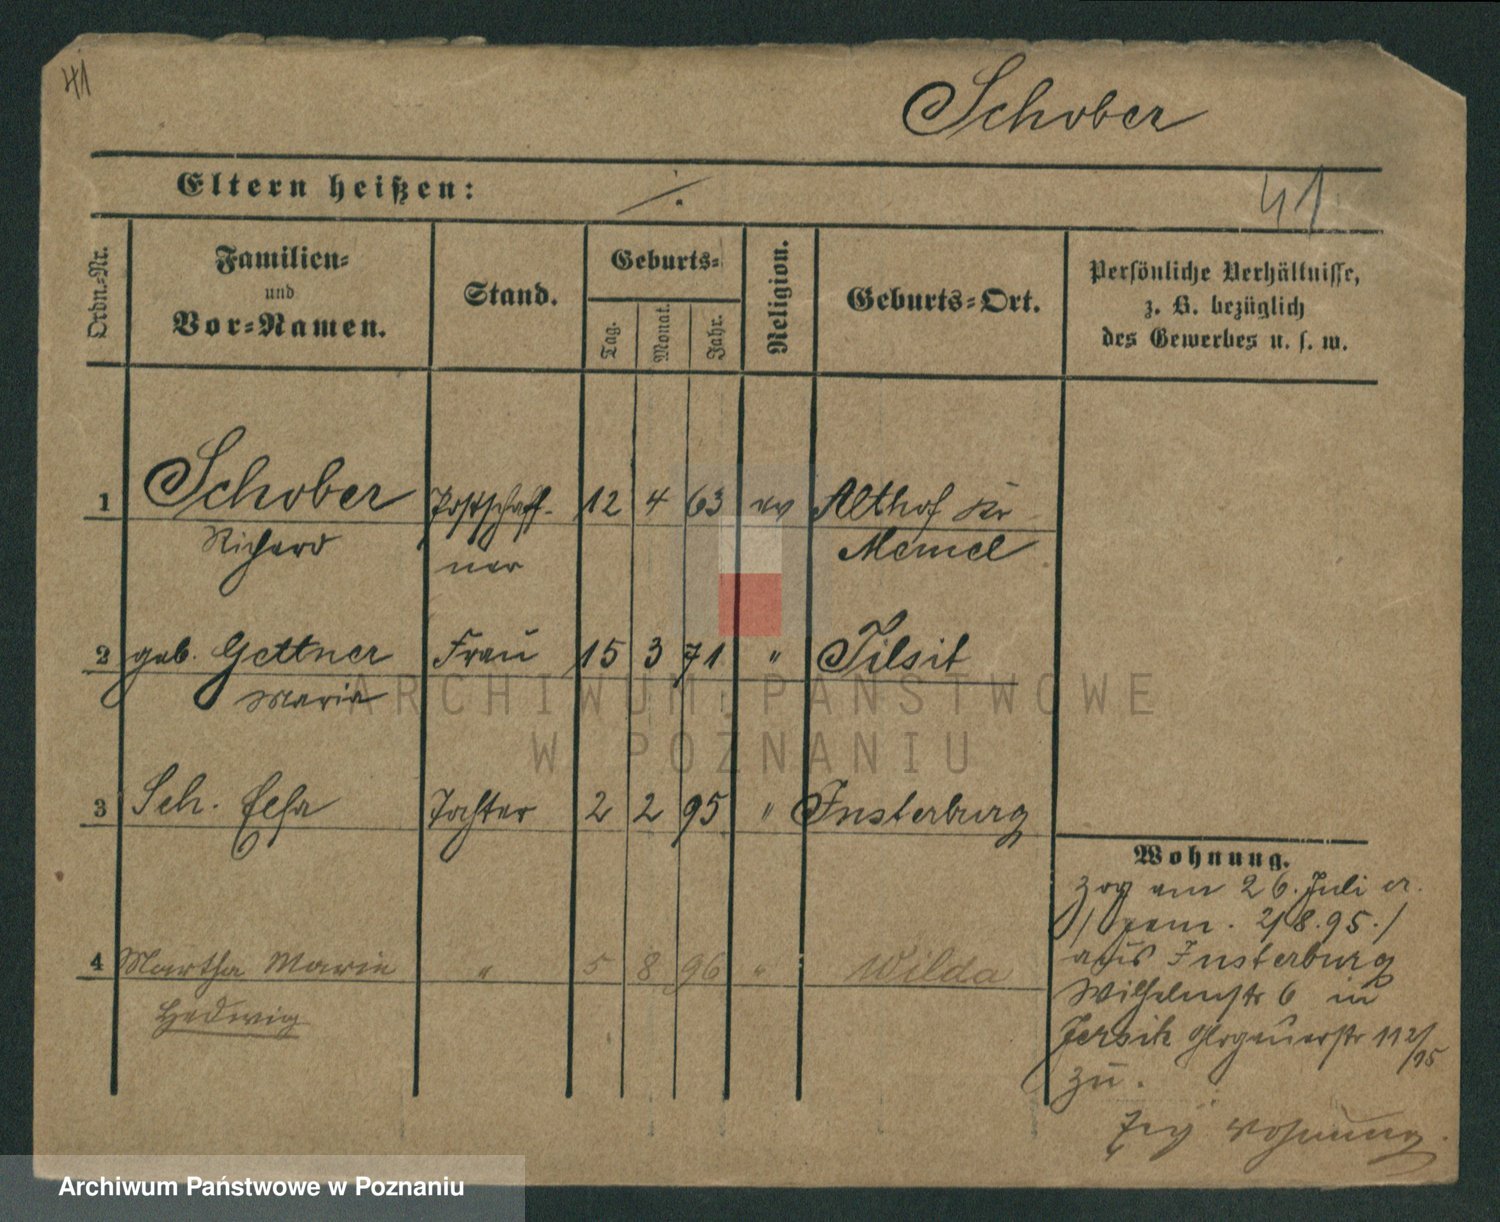 41
Schober
Eltern heißen: ./.
41
Ordn.-Nr.
Familien-
und
Vor-Namen.
Stand.
Geburts-
Tag.
Monat.
Jahr.
Religion.
Geburts-Ort.
Persönliche Verhältnisse,
z. B. bezüglich
des Gewerbes u. s. w.
1 Schober Postschaff- 12 4 63 ev Althof Kr
Richard ner Memel
2 geb. Gettner Frau 15 3 71 " Tilsit
Maria
3 Sch. Elsa Tochter 2 2 95 " Insterburg
4 Martha Marie " 5 8 96 " Wilda
Hedwig
Wohnung.
zog am 26. Juli cr.
/ gem. 2/8.95./
aus Insterburg
Wilhelmstr 6 in
Jersik Glogauerstr 112/
/15
zu.
Wohnung.
ARCHIWUM PAŃSTWOWE
W POZNANIU
Archiwum Państwowe w Poznaniu